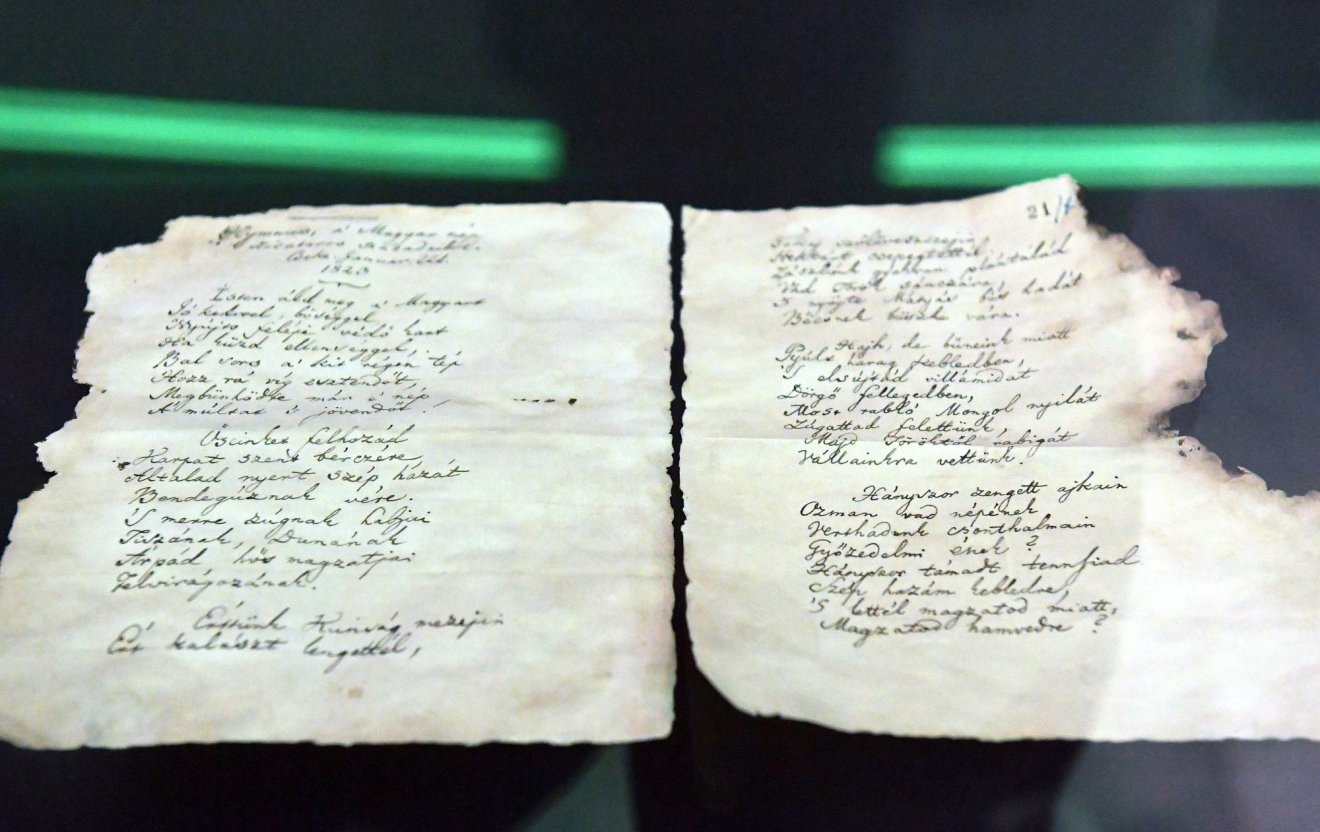 Hymnus, a' Magyar nép
zivataros századaiból.
Cseke, Januar. 22d.
1823
Isten áldd meg a' Magyart
Jó kedvvel, bőséggel,
Nyújts feléje védő kart
Ha küzd ellenséggel;
Bal sors a' kit régen tép
Hozz rá víg esztendőt,
Megbünhödte már e' nép
A' múltat 's jövendőt!
Őseinket felhozád
Kárpát szent bérczére,
Általad nyert szép hazát
Bendegúznak vére.
'S merre zúgnak habjai
Tiszának, Dunának
Árpád hős magzatjai
Felvirágozának.
Értünk Kunság mezejin
Ért kalászt lengettél,
21/
Tokaj szőlővesszejein
Nektárt csepegtettél.
Zászlónk gyakran plántálád
Vad Török sánczára,
'S nyögte Mátyás bús hadát
Bécsnek büszke vára.
Hajh, de bűneink miatt
Gyúlt harag kebledben,
'S elsújtád villámidat
Dörgő fellegedben,
Most rabló Mongol nyilát
Zúgattad felettünk,
Majd Töröktől rabigát
Vállainkra vettünk.
Hányszor zengett ajkain
Ozman vad népének
Vert hadunk csonthalmain
Győzedelmi ének?
Hányszor támadt tennfiad
Szép hazám kebledre,
'S lettél magzatod miatt,
Magzatod hamvedre?